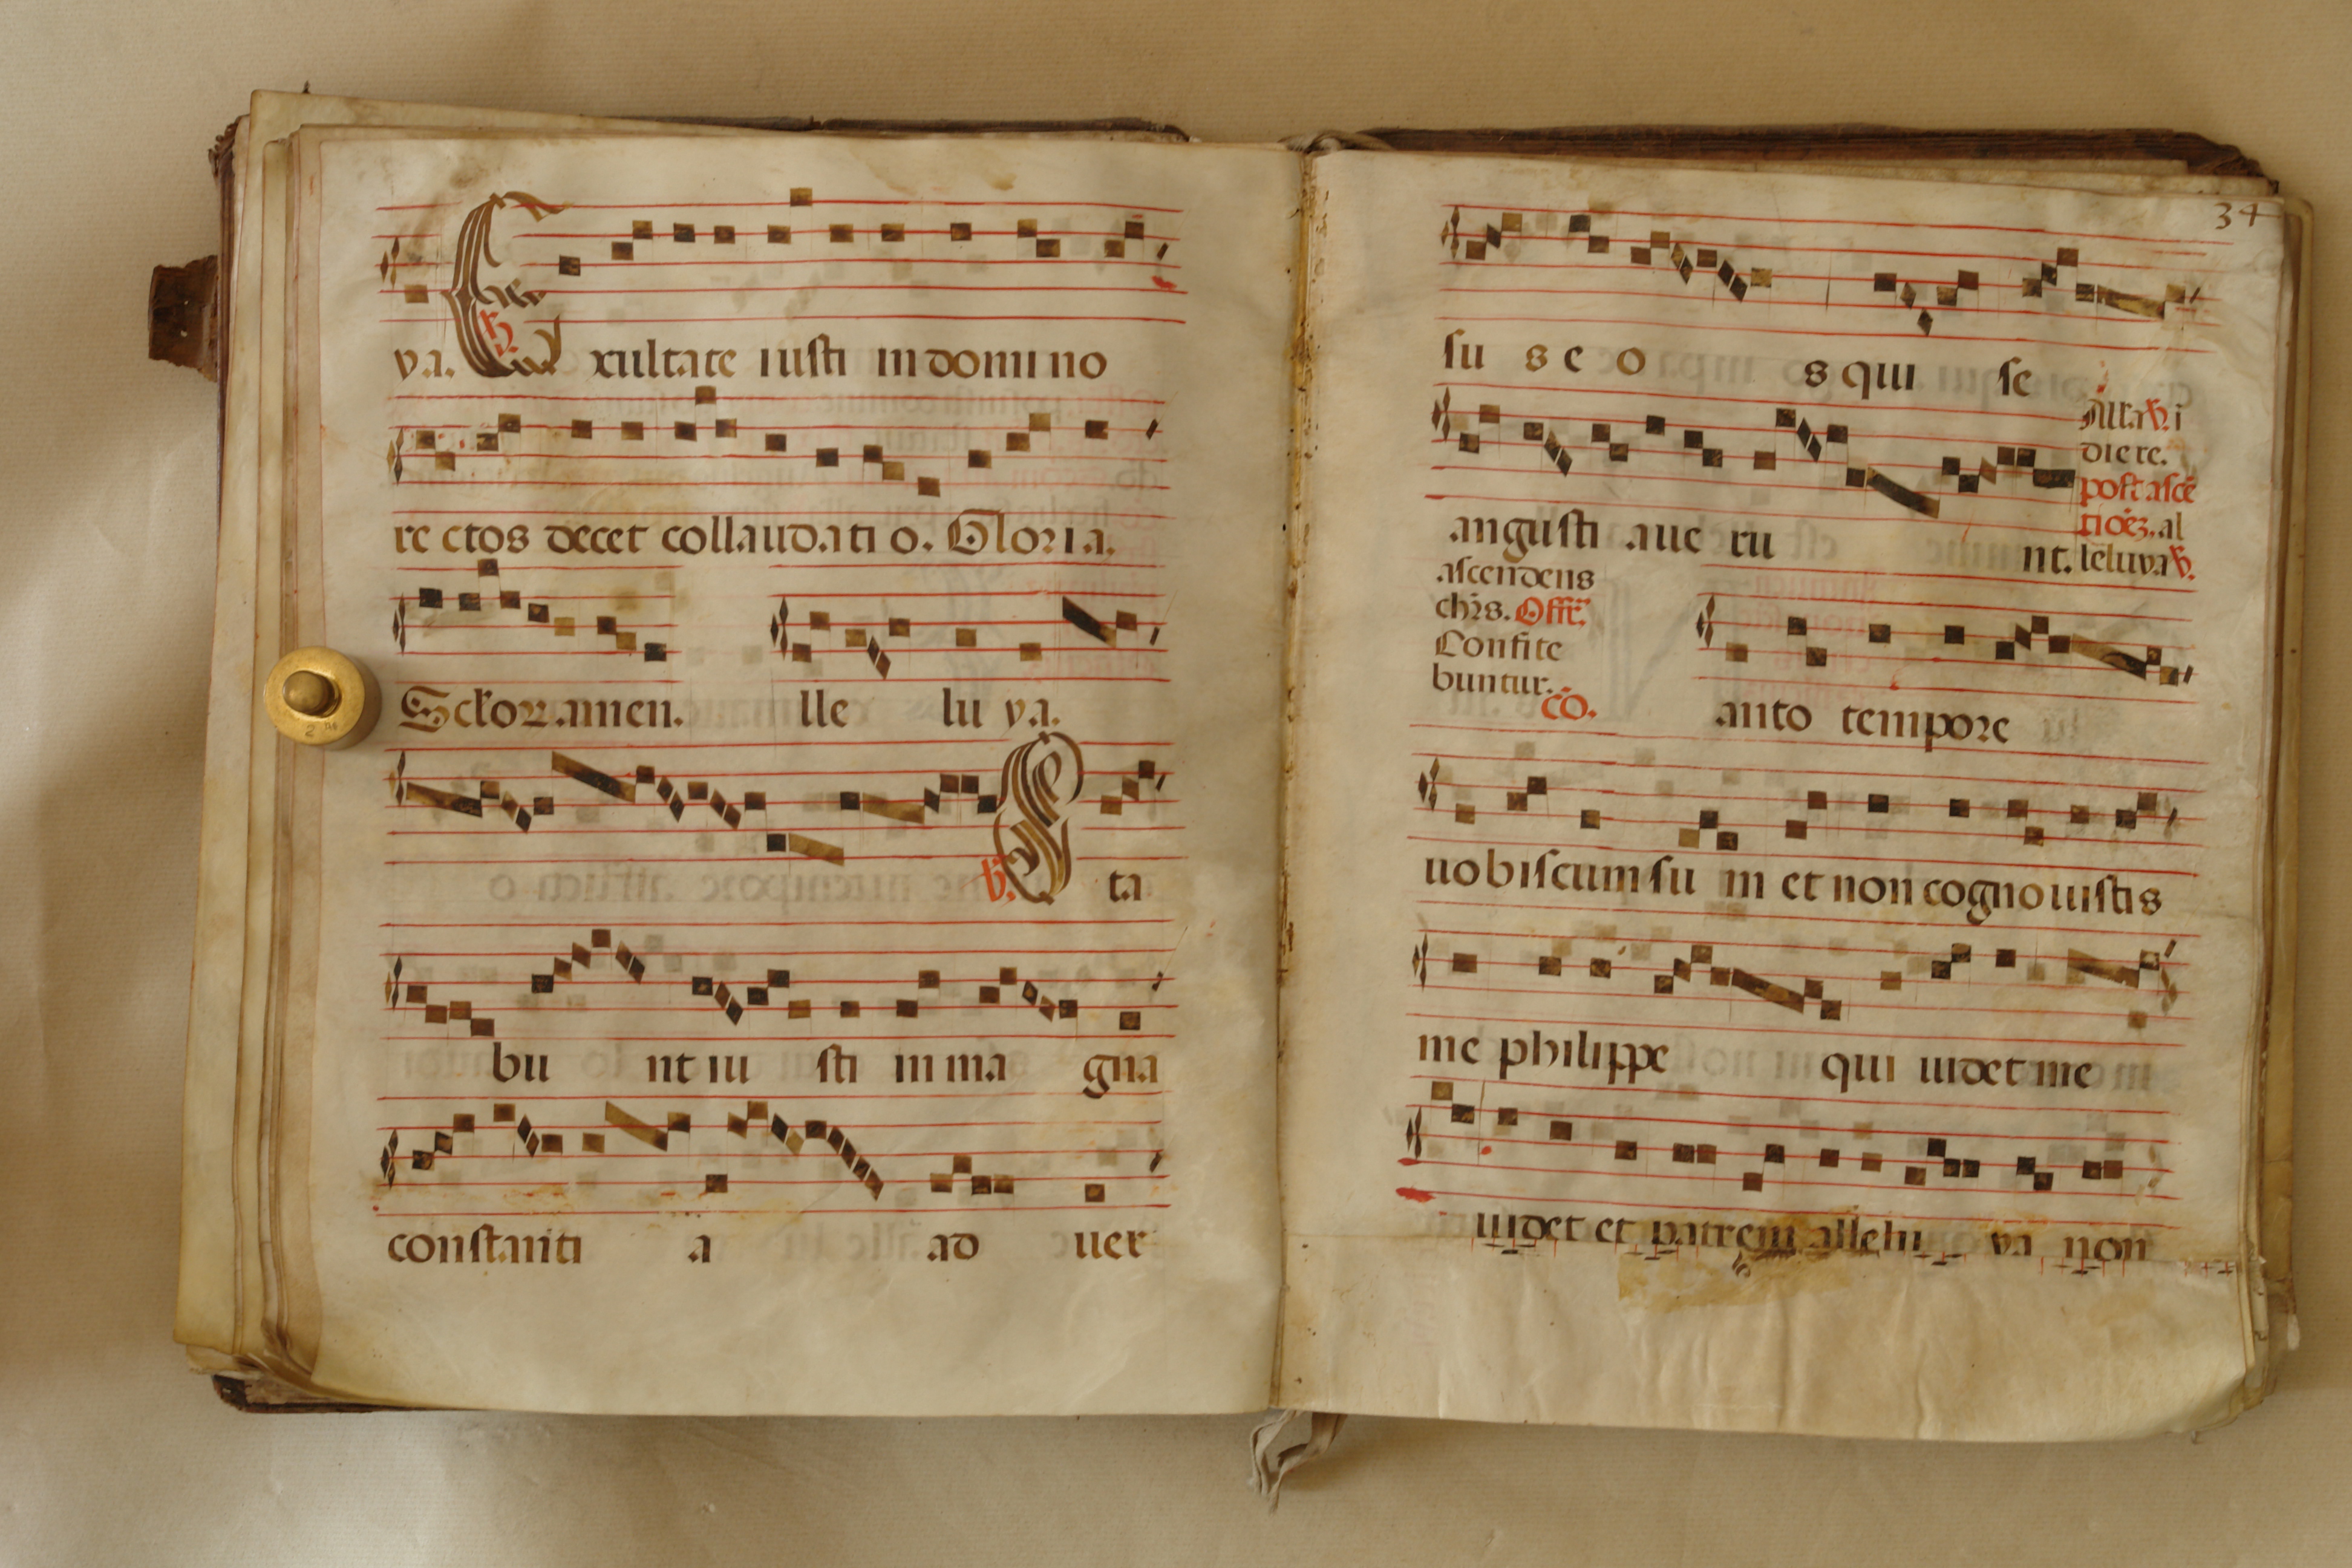 ya. E xultate iusti in domino
℣.
re ctos decet collaudati o. Gloria.
Sc̄lor̄. amen. lle lu ya.
℣. S ta
bu nt iu sti in ma gna
constanti a ad uer
34
su s e o s qui se
Alla ℣. i
die re.
post ascē
angusti aue ru nt.
tioēz. al
lēluya ℣.
ascendens
chr̄s. Offr̄.
Confite
buntur.
cō. anto tempore
uobiscum su m et non cognouistis
me philippe qui uidet me
uidet et patrem allelu ya non